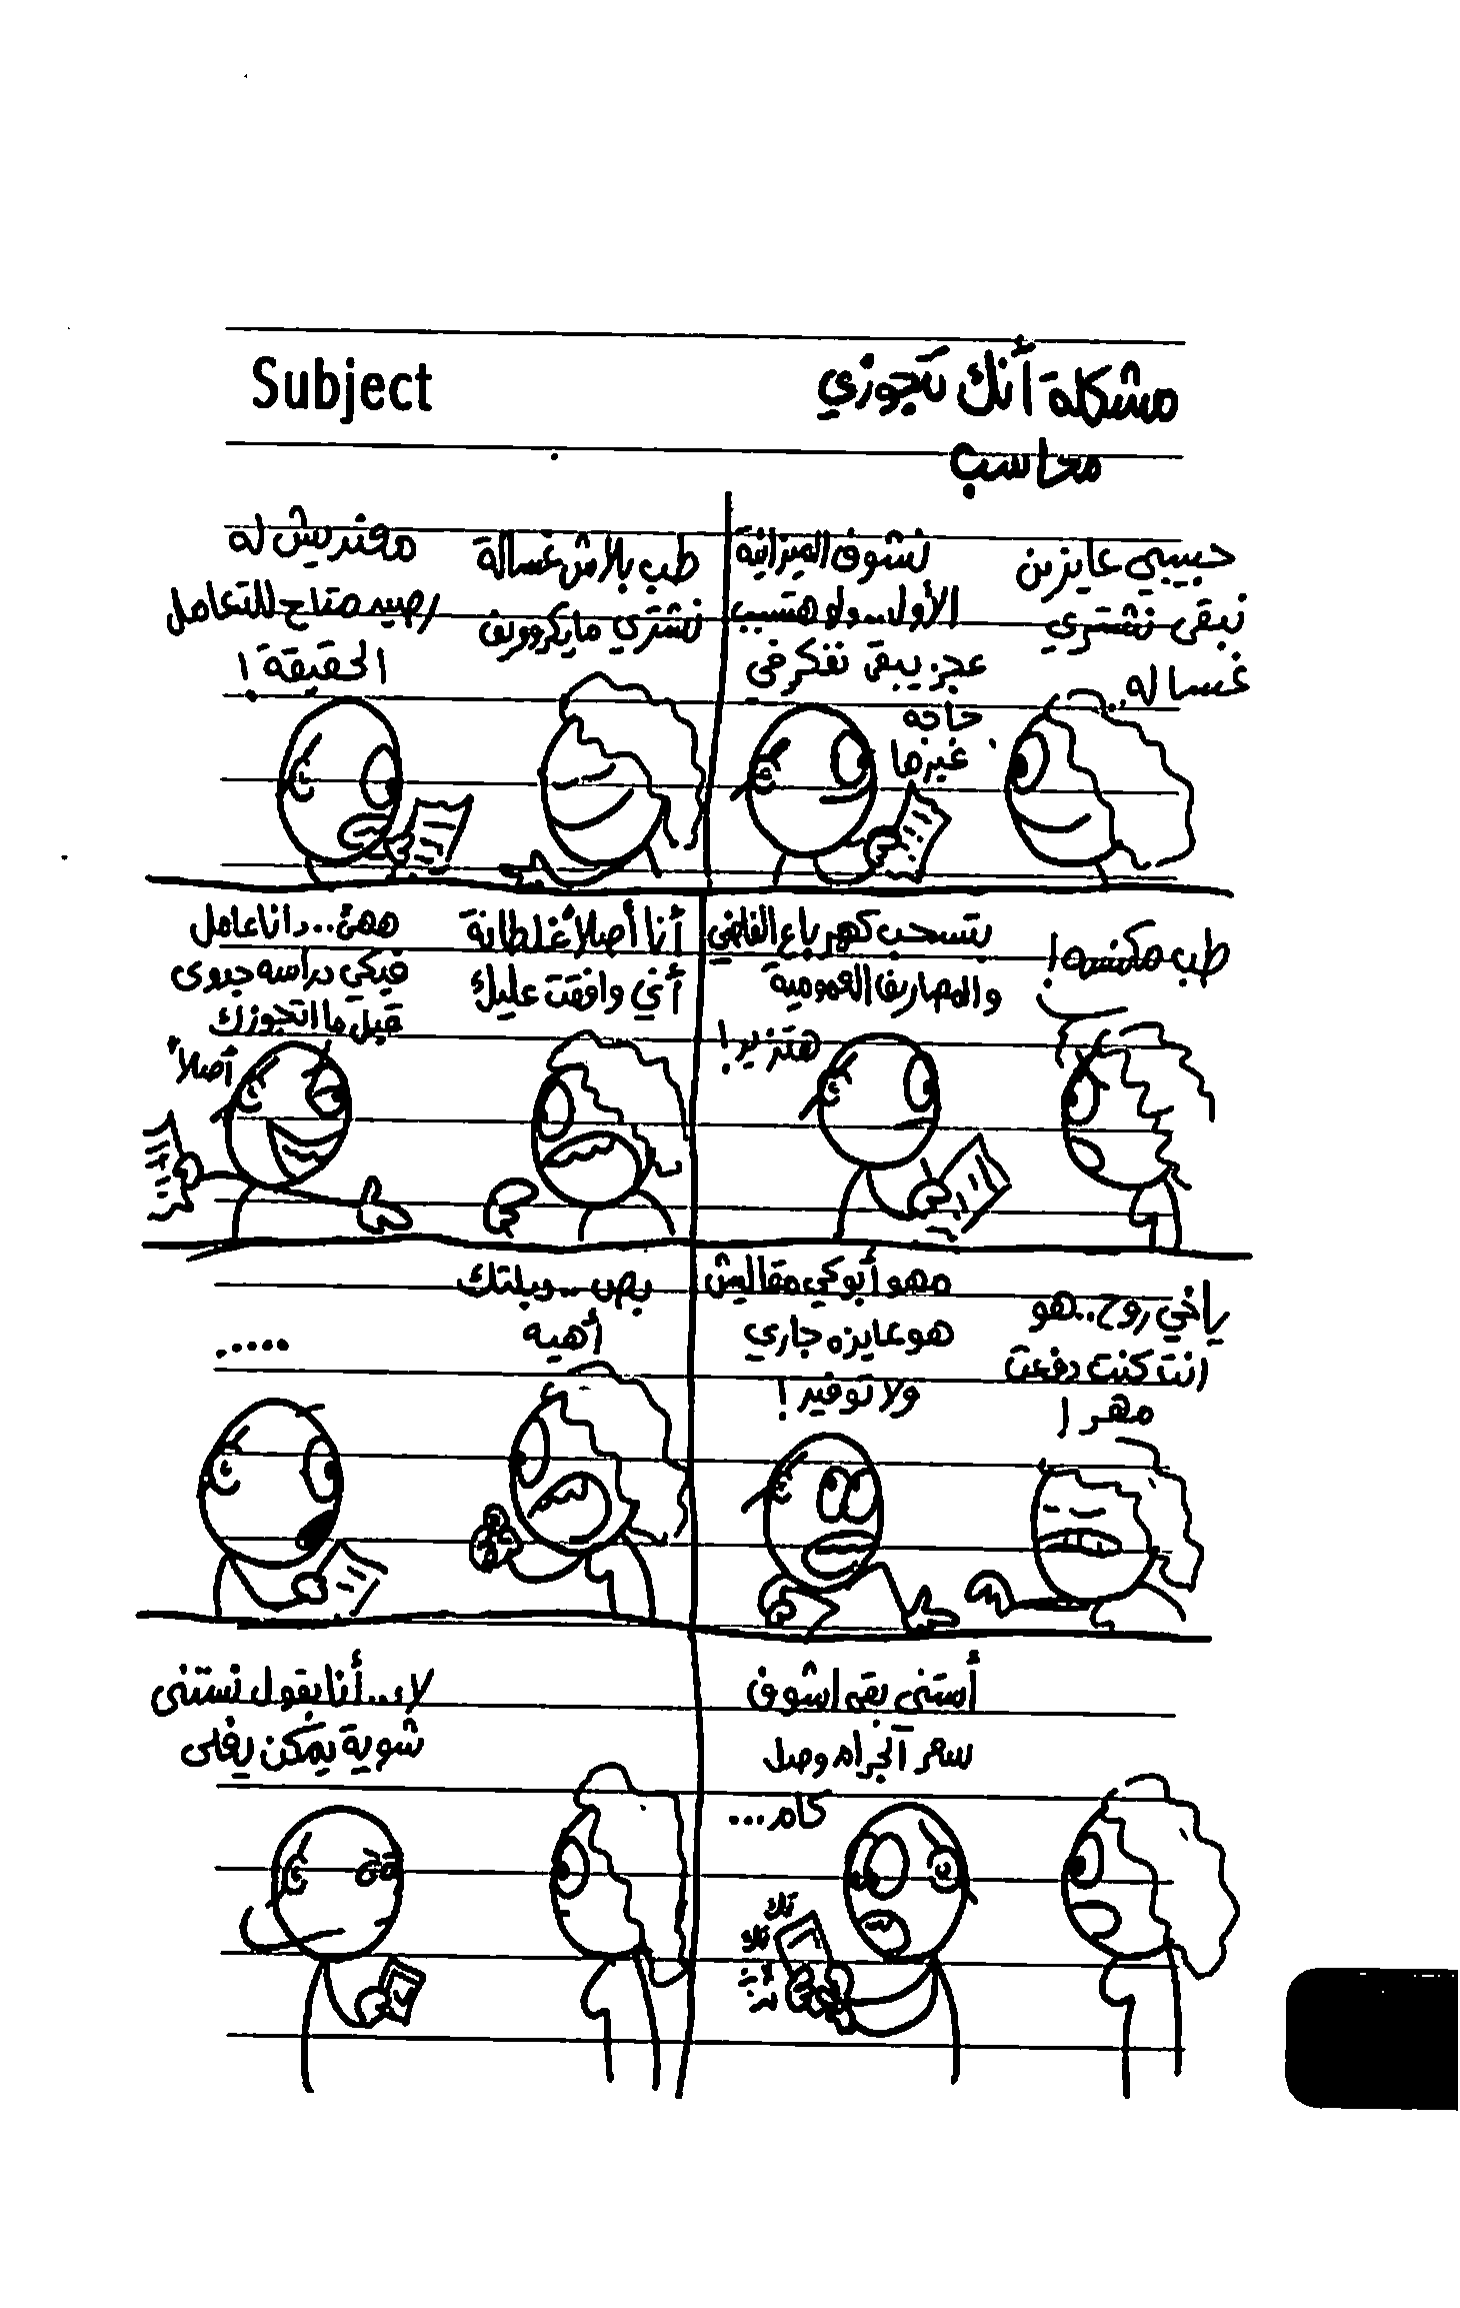 Subject
مشكلة أنك تتجوزي
محاسب
حبيبي عايزين
نبقى نشتري
غساله..
نشوف الميزانية
الأول.. ولو هتسبب
عجز يبقى نفكر في
حاجه
غيرها
طب بلاش غسالة
نشتري مايكروويف
مقدريش له
رصيد متاح للتعامل
الحقيقة!
طب مكنسه!
بتسحب كهرباء ع الفاضي
والمصاريف العمومية
هتزيد!
أنا أصلاً غلطانة
أني وافقت عليك
ههئ.. دانا عامل
فيكي دراسه جدوى
قبل ما اتجوزك
أصلاً
ياخي روح.. هو
انت كنت دفعت
مهر!
مهو أبوكي مقاليش
هو عايزه جاري
ولا توفير!
بص.. دبلتك
أهيه
.....
أستنى بقى اشوف
سعر الجرام وصل
كام...
تك
تك
لاء.. أنا بقول نستنى
شوية يمكن يغلى